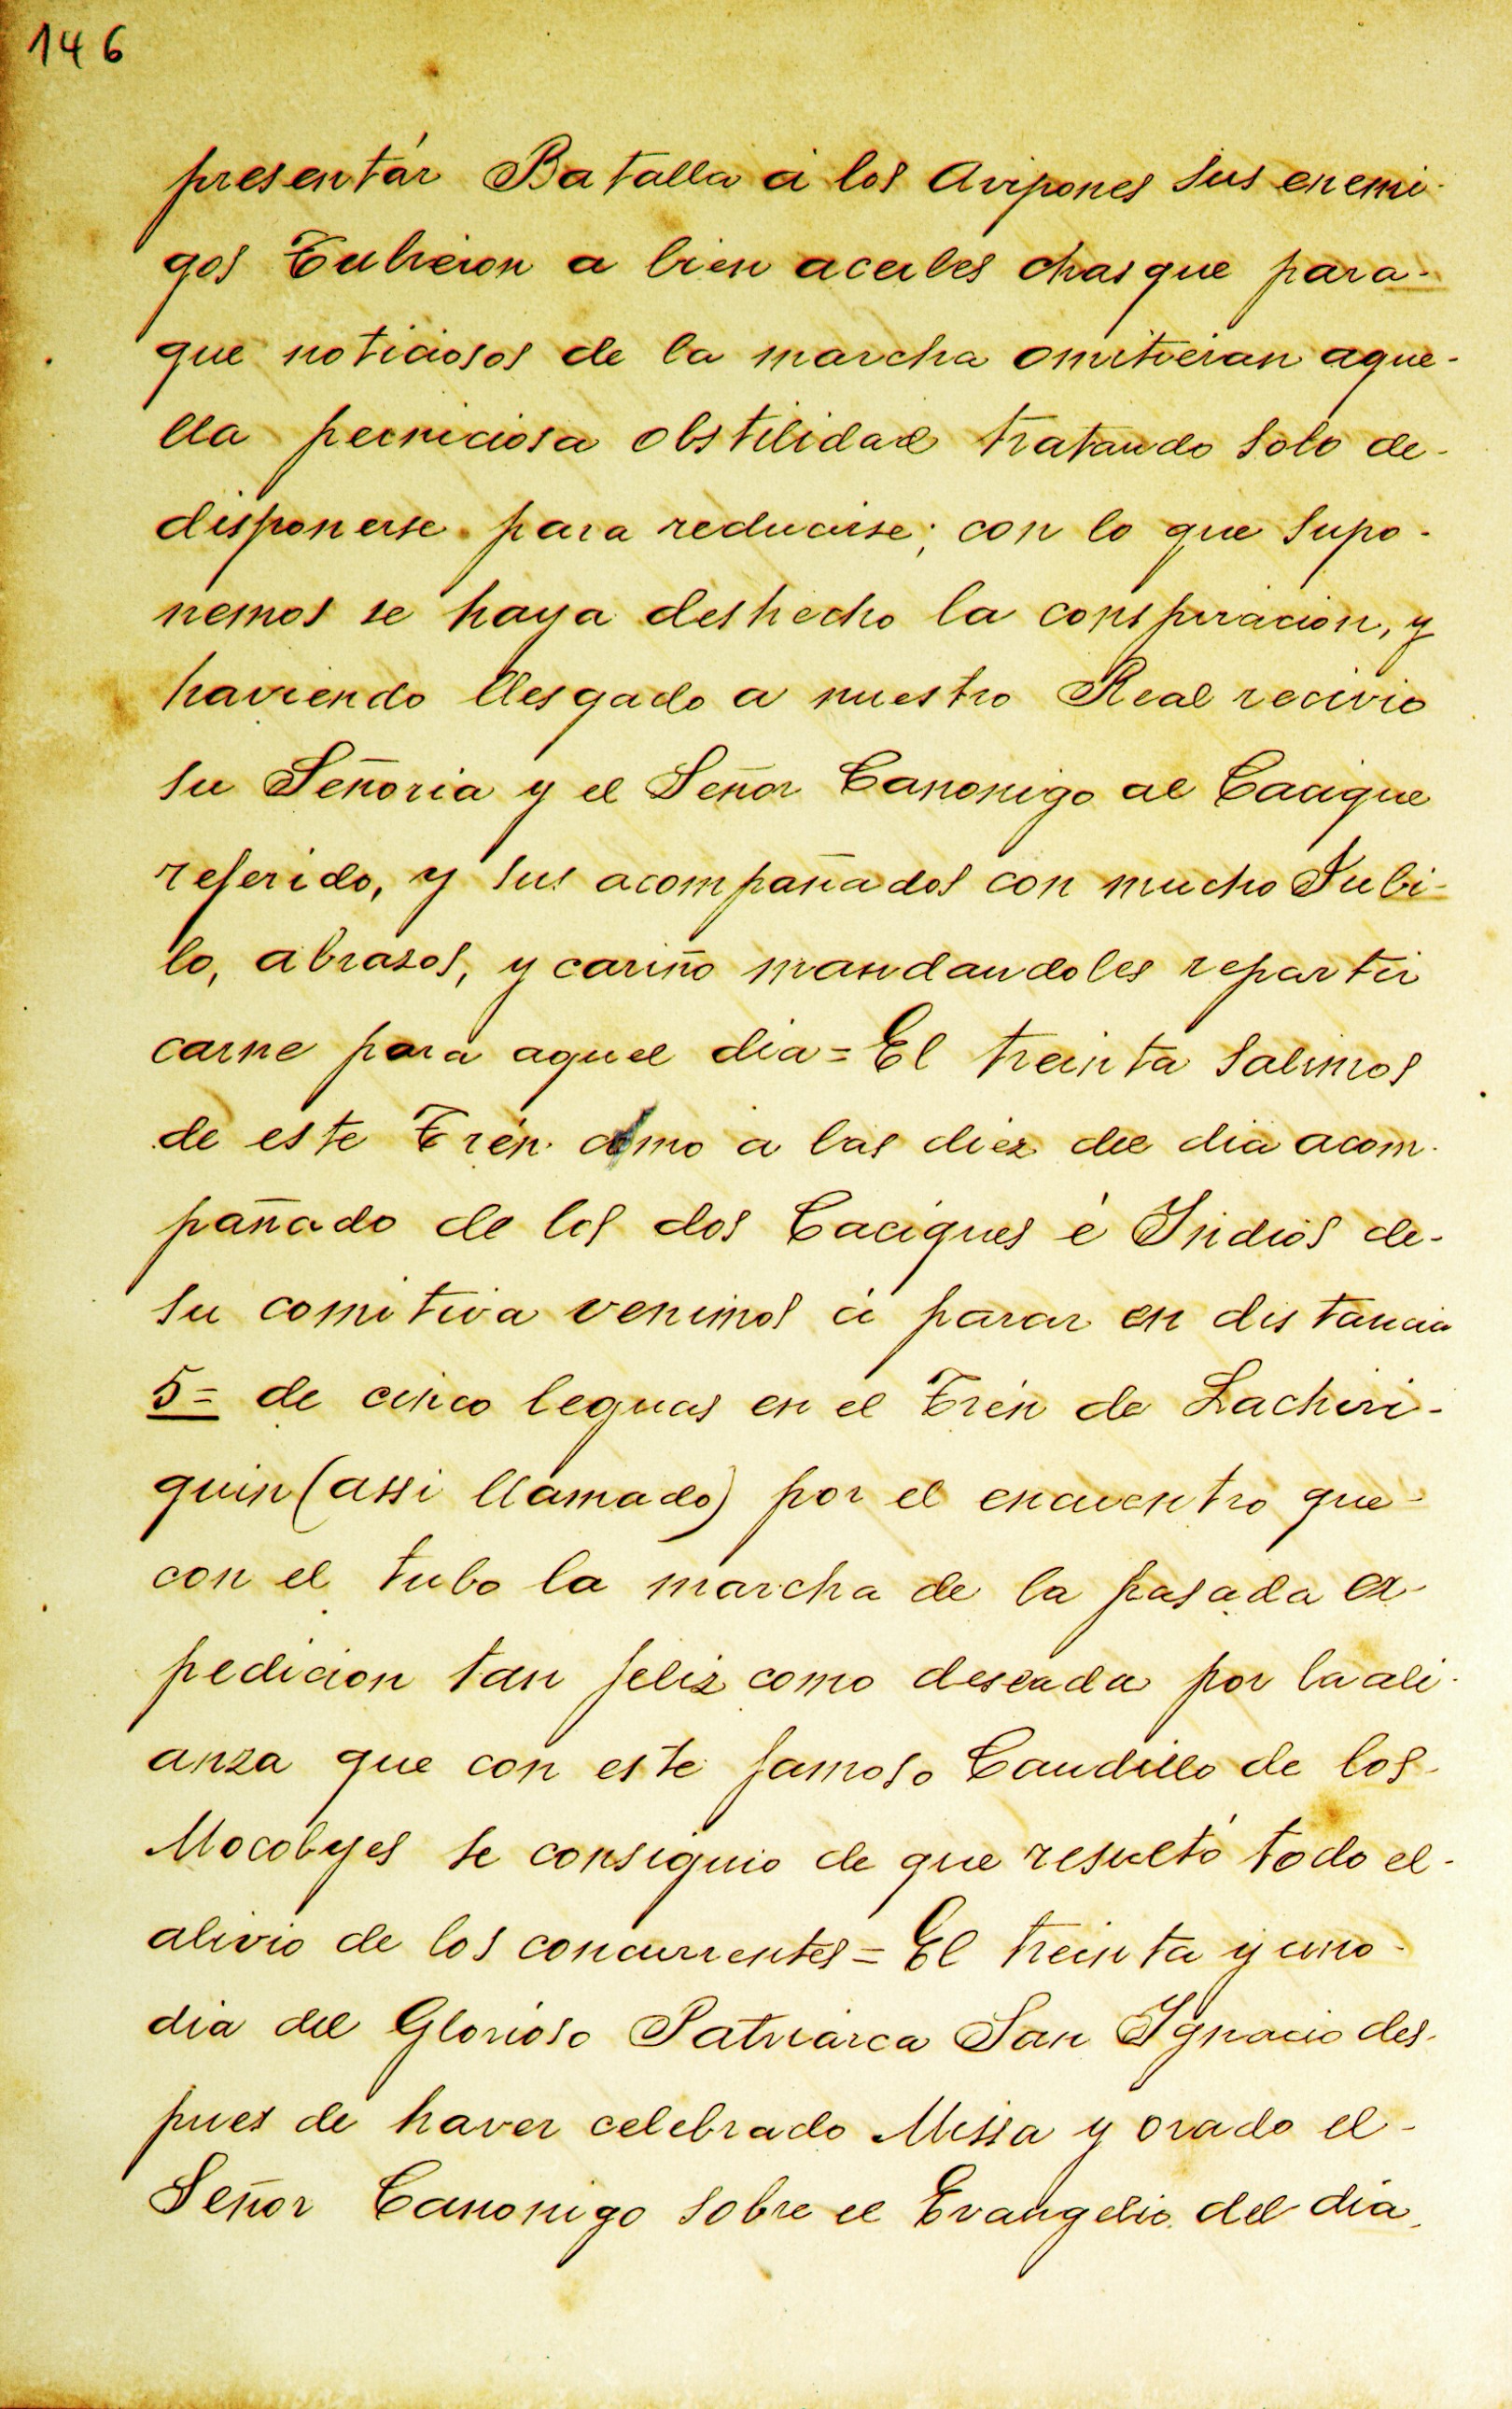 146
presentár Batalla á los Avipones sus enemi-
gos Tubieron a bien acerles chasque para-
que noticiosos de la marcha omitieran aque-
lla perniciosa obstilidad tratando solo de-
disponerse para reducirse; con lo que supo-
nemos se haya deshecho la conspiracion, y
haviendo llesgado a nuestro Real recivio
su Señoria y el Señor Canonigo al Cacique
referido, y sus acompañados con mucho Jubi-
lo, abrasos, y cariño mandandoles repartir
carne para aquel dia = El treinta salimos
de este Trén como a las diez del dia acom-
pañado de los dos Caciques é Indios de-
su comitiva venimos á parar en distancia
5= de cinco leguas en el Trén de Lachiri-
quin (assi llamado) por el encuentro que-
con el tubo la marcha de la pasada ex-
pedicion tan feliz como deseada por la ali-
anza que con este famoso Caudillo de los-
Mocobyes se consiguio de que resultó todo el-
alivio de los concurrentes = El treinta y uno-
dia del Glorioso Patriarca San Ignacio des-
pues de haver celebrado Missa y orado el-
Señor Canonigo sobre el Evangelio del dia,